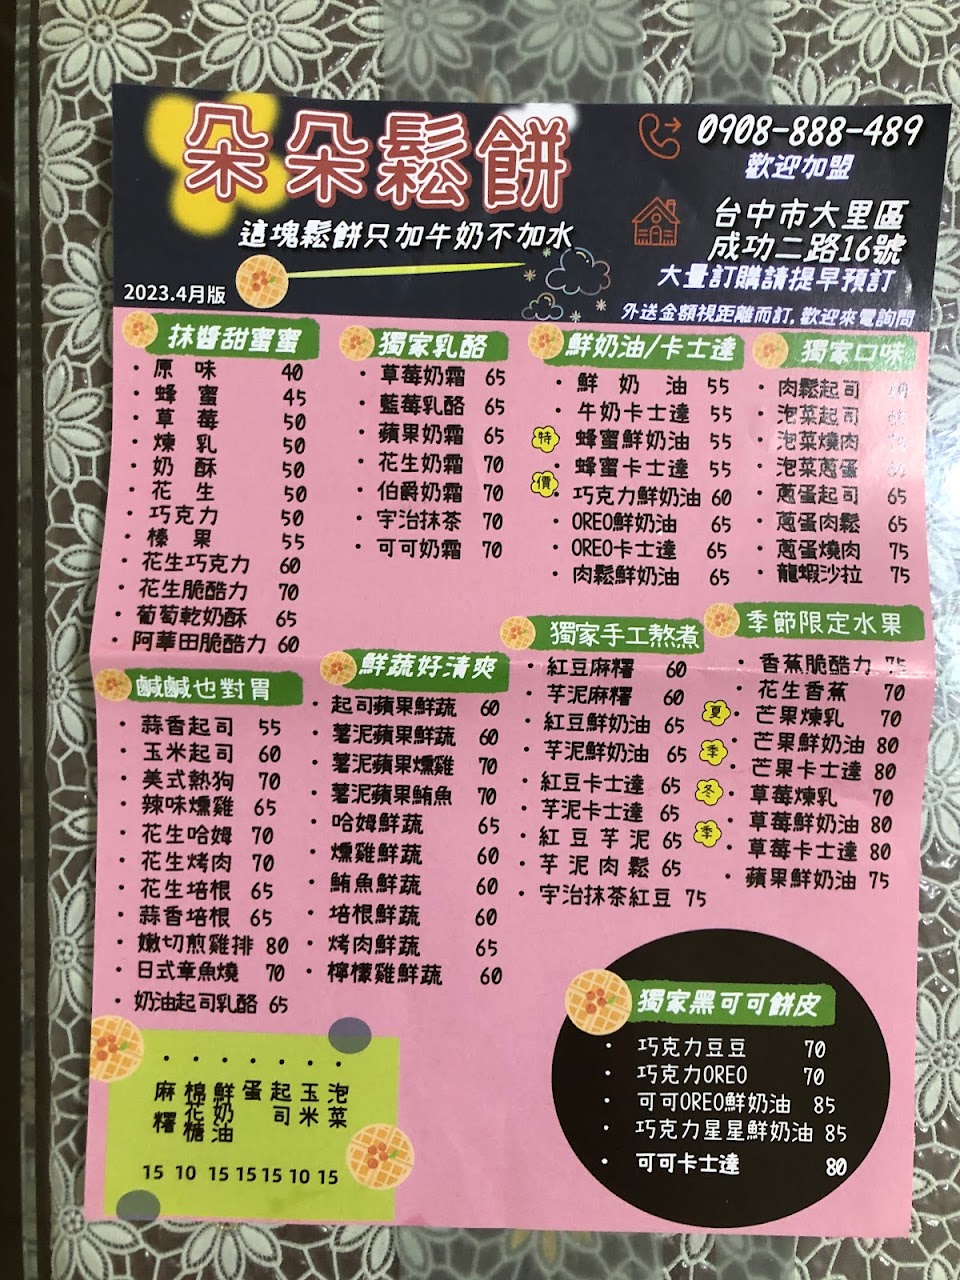 朵朵鬆餅
這塊鬆餅只加牛奶不加水
2023.4月版
0908-888-489
歡迎加盟
台中市大里區
成功二路16號
大量訂購請提早預訂
外送金額視距離而訂,歡迎來電詢問
抹醬甜蜜蜜
・原 味 40
・蜂 蜜 45
・草 莓 50
・煉 乳 50
・奶 酥 50
・花 生 50
・巧克力 50
・榛 果 55
・花生巧克力 60
・花生脆酷力 70
・葡萄乾奶酥 65
・阿華田脆酷力 60
獨家乳酪
・草莓奶霜 65
・藍莓乳酪 65
・蘋果奶霜 65
・花生奶霜 70
・伯爵奶霜 70
・宇治抹茶 70
・可可奶霜 70
鮮奶油/卡士達
・鮮 奶 油 55
・牛奶卡士達 55
特價
・蜂蜜鮮奶油 55
・蜂蜜卡士達 55
・巧克力鮮奶油 60
・OREO鮮奶油 65
・OREO卡士達 65
・肉鬆鮮奶油 65
獨家口味
・肉鬆起司
・泡菜起司
・泡菜燒肉
・泡菜蔥蛋
・蔥蛋起司 65
・蔥蛋肉鬆 65
・蔥蛋燒肉 75
・龍蝦沙拉 75
鹹鹹也對胃
・蒜香起司 55
・玉米起司 60
・美式熱狗 70
・辣味燻雞 65
・花生哈姆 70
・花生烤肉 70
・花生培根 65
・蒜香培根 65
・嫩切煎雞排 80
・日式章魚燒 70
・奶油起司乳酪 65
鮮蔬好清爽
・起司蘋果鮮蔬 60
・薯泥蘋果鮮蔬 60
・薯泥蘋果燻雞 70
・薯泥蘋果鮪魚 70
・哈姆鮮蔬 65
・燻雞鮮蔬 60
・鮪魚鮮蔬 60
・培根鮮蔬 60
・烤肉鮮蔬 65
・檸檬雞鮮蔬 60
獨家手工熬煮
・紅豆麻糬 60
・芋泥麻糬 60
・紅豆鮮奶油 65
・芋泥鮮奶油 65
・紅豆卡士達 65
・芋泥卡士達 65
・紅豆芋泥 65
・芋泥肉鬆 65
・宇治抹茶紅豆 75
季節限定水果
・香蕉脆酷力 75
・花生香蕉 70
夏季
・芒果煉乳 70
・芒果鮮奶油 80
・芒果卡士達 80
冬季
・草莓煉乳 70
・草莓鮮奶油 80
・草莓卡士達 80
・蘋果鮮奶油 75
・麻糬 15
・棉花糖 10
・鮮奶油 15
・蛋 15
・起司 15
・玉米 10
・泡菜 15
獨家黑可可餅皮
・巧克力豆豆 70
・巧克力OREO 70
・可可OREO鮮奶油 85
・巧克力星星鮮奶油 85
・可可卡士達 80